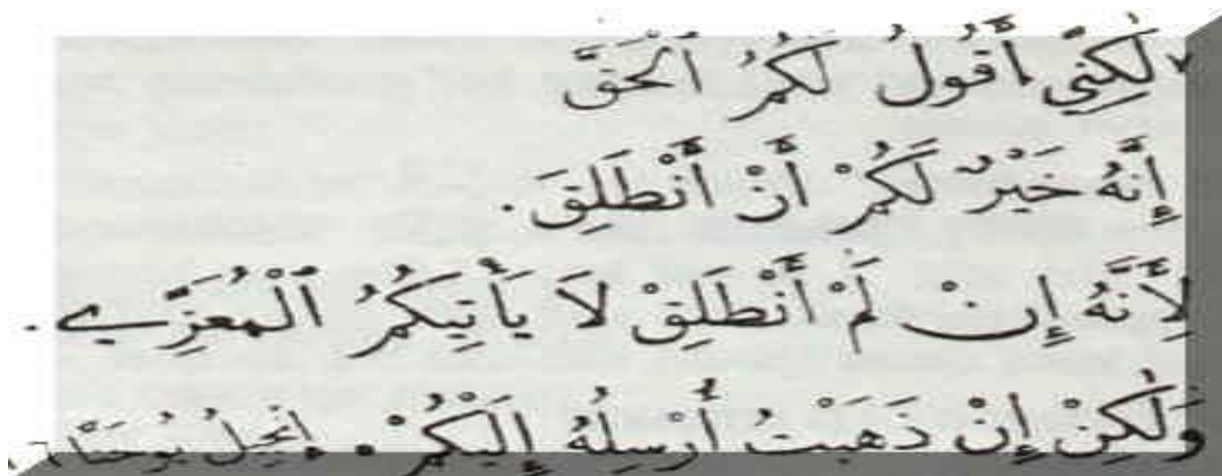 ٧ لٰكِنِّي أَقُولُ لَكُمُ ٱلْحَقَّ
إِنَّهُ خَيْرٌ لَكُمْ أَنْ أَنْطَلِقَ.
لِأَنَّهُ إِنْ لَمْ أَنْطَلِقْ لَا يَأْتِيكُمُ ٱلْمُعَزِّي.
وَلٰكِنْ إِنْ ذَهَبْتُ أُرْسِلُهُ إِلَيْكُمْ. إِنْجِيلُ يُوحَنَّا